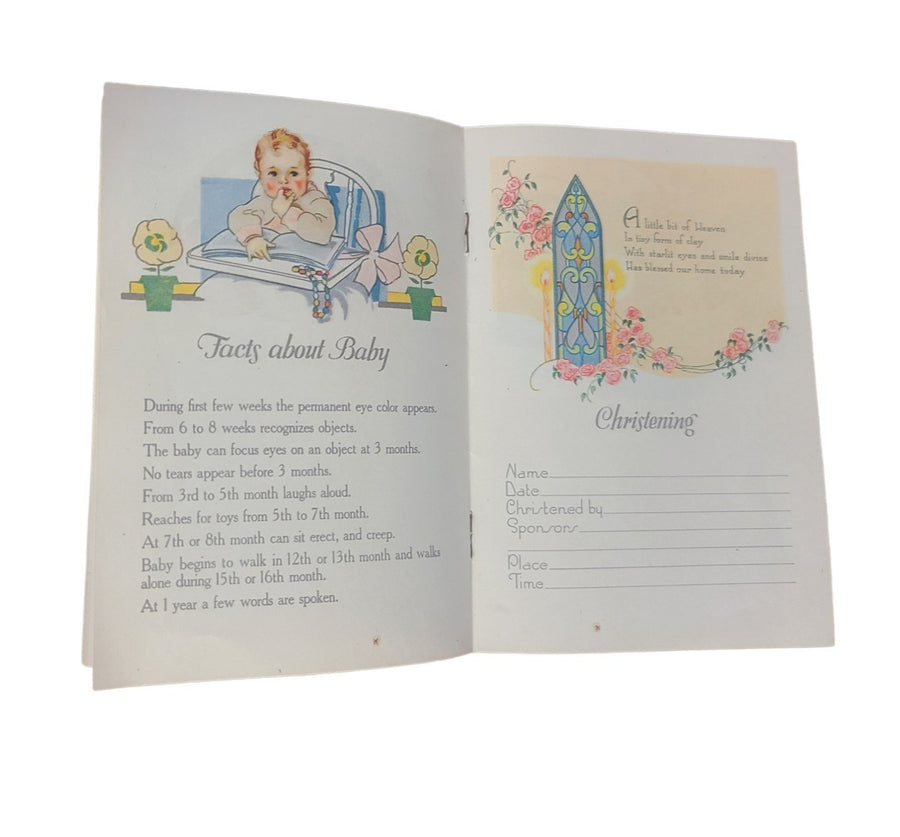 Facts about Baby
During first few weeks the permanent eye color appears.
From 6 to 8 weeks recognizes objects.
The baby can focus eyes on an object at 3 months.
No tears appear before 3 months.
From 3rd to 5th month laughs aloud.
Reaches for toys from 5th to 7th month.
At 7th or 8th month can sit erect, and creep.
Baby begins to walk in 12th or 13th month and walks
alone during 15th or 16th month.
At 1 year a few words are spoken.
A little bit of Heaven
In tiny form of clay
With starlit eyes and smile divine
Has blessed our home today
Christening
Name
Date
Christened by
Sponsors
Place
Time